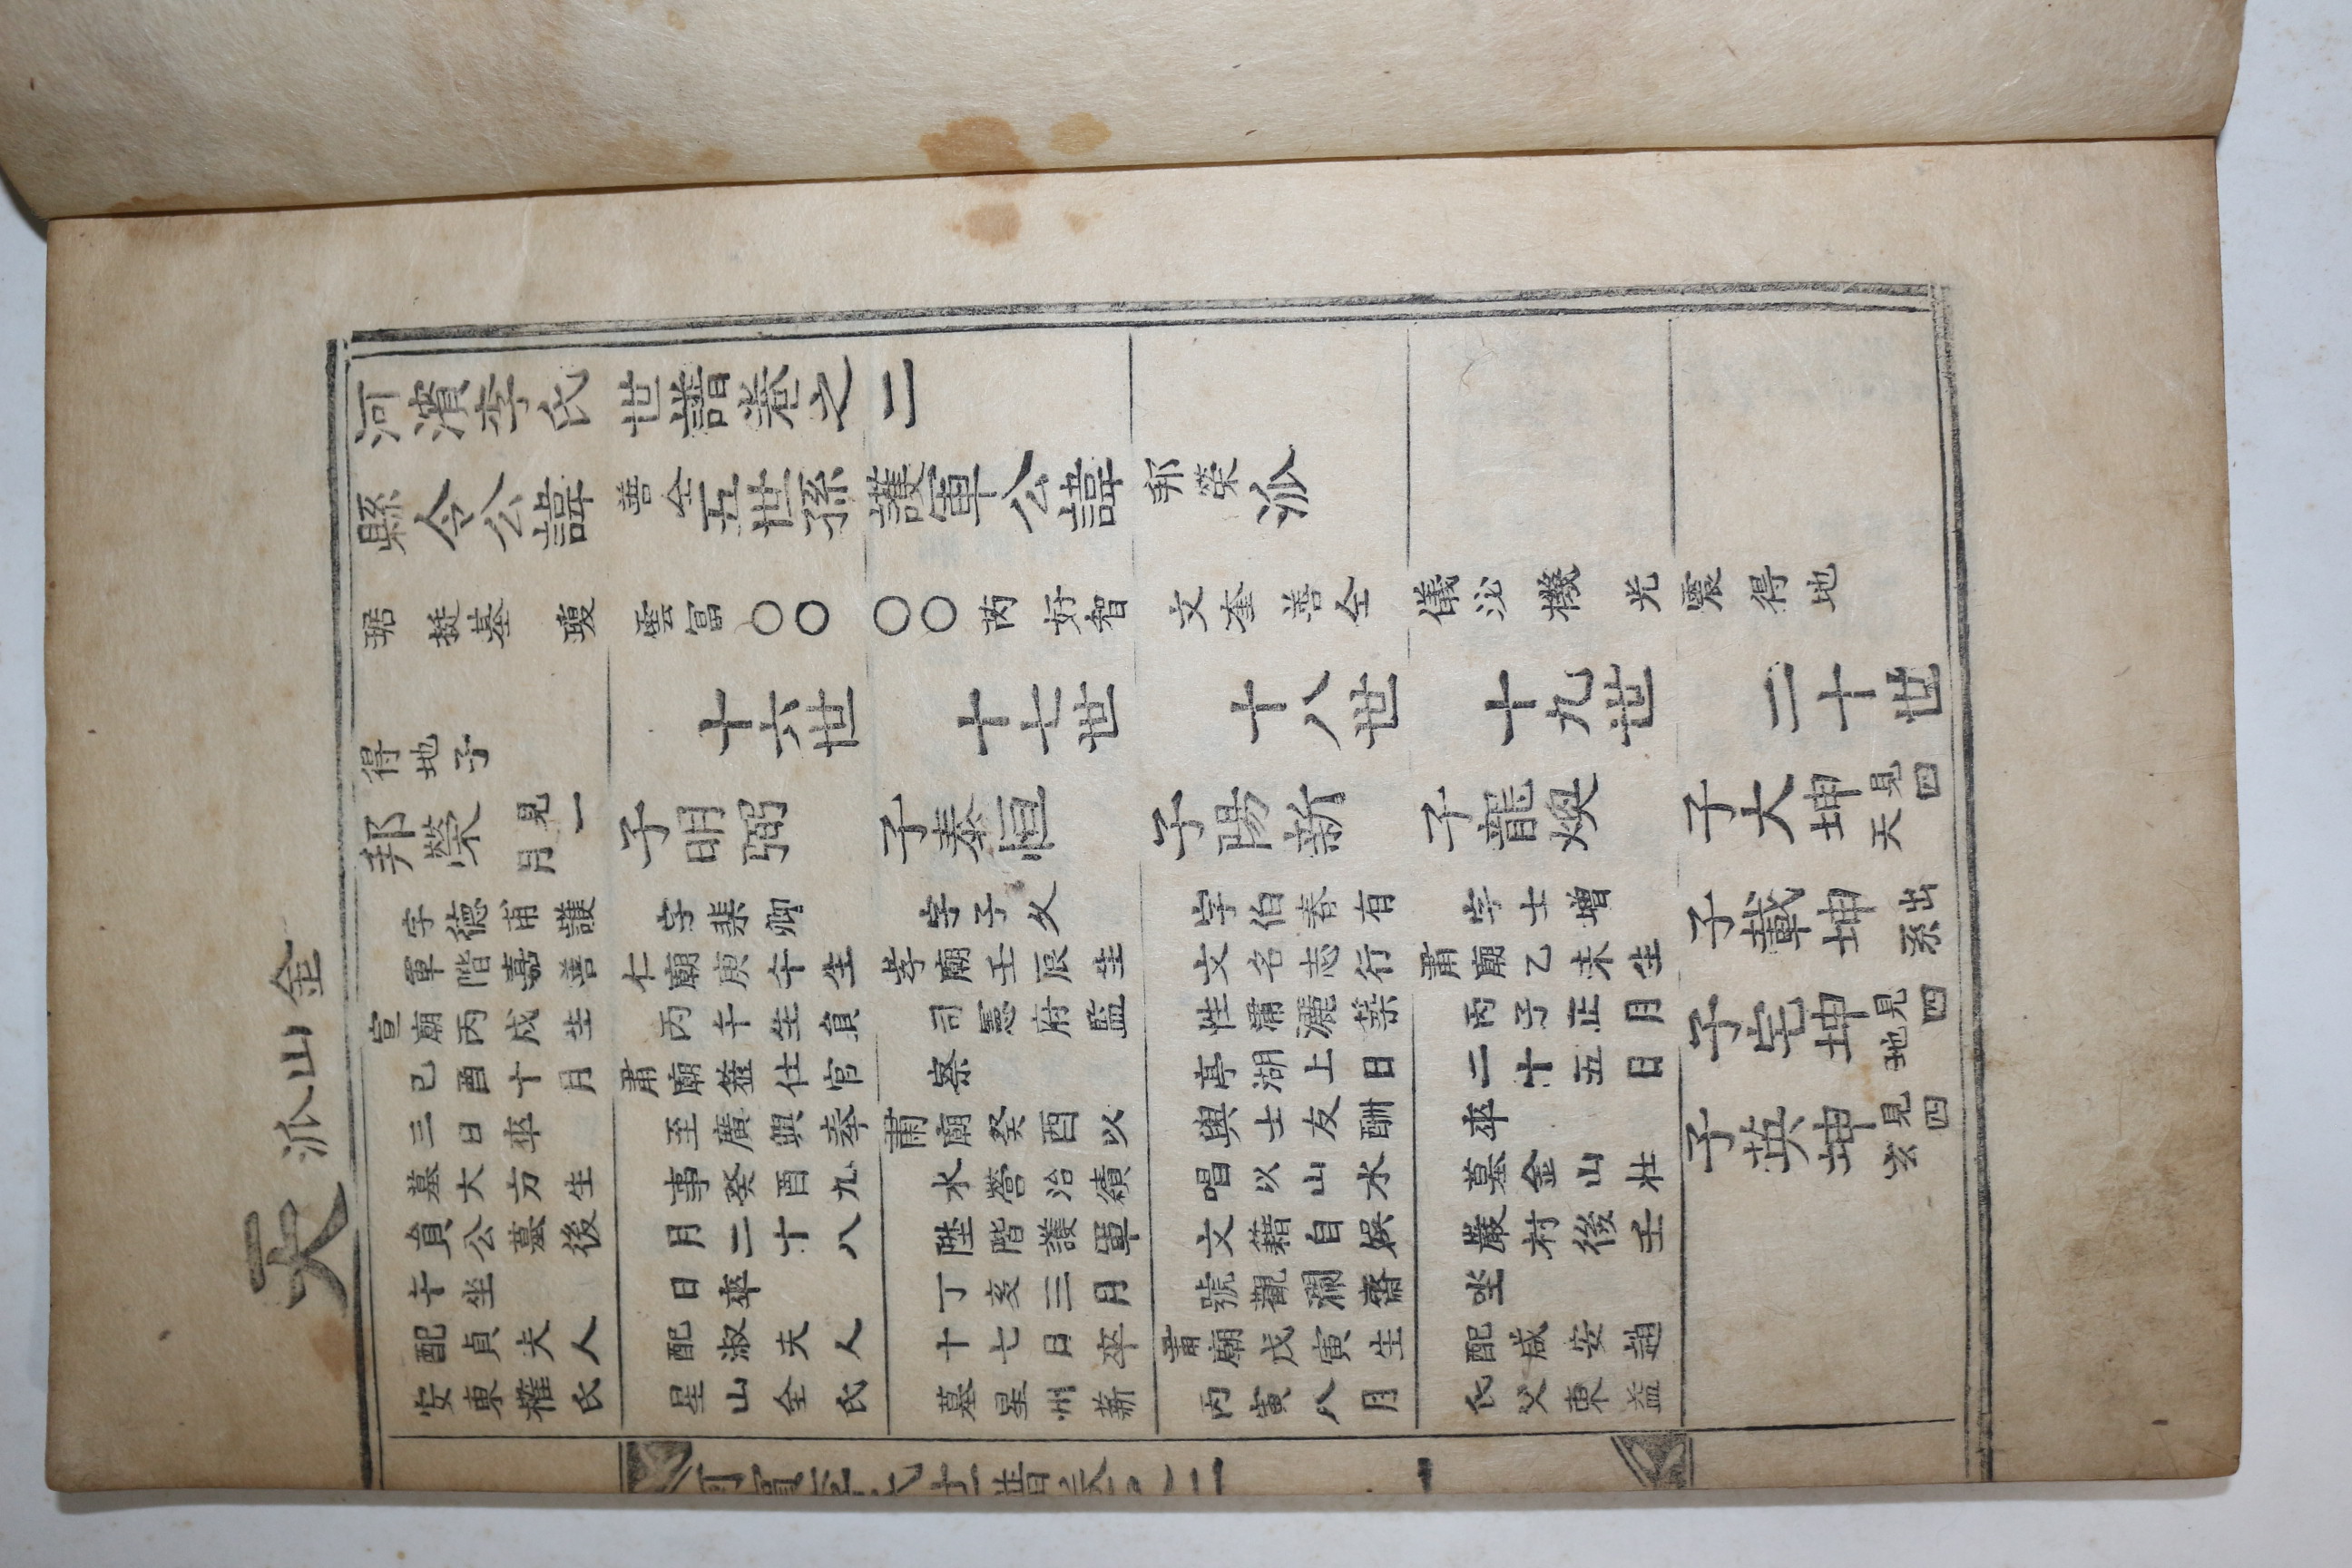 金山派
天
河濱李氏世譜卷之二
縣令公諱善仝五世孫護軍公諱邦榮派
琚 挻基 瓊 雲冨 〇〇 〇〇 芮 好智 文奎 善仝 儀泌 機 光震 得地
得地子
邦榮 見一月
字德甫護
軍階嘉善
宣廟丙戌生
已酉十月
三日卒
墓大方生
貟公墓後
午坐
配貞夫人
安東權氏
十六世
子明弼
字棐卿
仁廟庚午生
丙午生貟
肅廟筮仕官
至廣興奉
事癸酉九
月二十八
日卒
配淑夫人
星山全氏
十七世
子泰恒
字子久
孝廟壬辰生
司憲府監
察
肅廟癸酉以
水營治績
陞階護軍
丁亥三月
十七日卒
墓星州薪
十八世
子陽新
字伯春有
文名志行
性瀟灑築
亭湖上日
與士友酬
唱以山水
文籍自娛
號觀瀾齋
肅廟戊寅生
丙寅八月
十九世
子龍煥
字士增
肅廟乙未生
丙子正月
二十五日
卒
墓金山壯
巖村後壬
坐
配咸安趙
氏父東益
二十世
子大坤 見四天
子載坤 出系
子宅坤 見四地
子英坤 見四玄
河濱李氏世譜卷之二
一